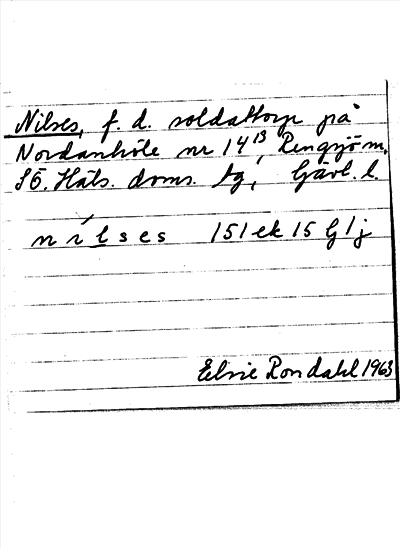 Nilses, f. d. soldattorp på
Nordanhöle nr 14¹³, Rengsjö sn,
SÖ. Häls. doms. tg, Gävl. l.
nilses 151 ek 15 G 1 j
Elvie Rondahl 1963